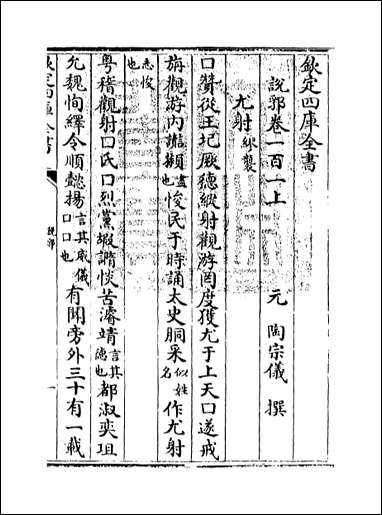 欽定四庫全書
說郛卷一百一上
元 陶宗儀 撰
尤射 繆襲
口贊從王圮厥德縱射觀游罔度獲尤于上天口遂戒
旃觀游内讌攧盡也悛民于時誦太史胴采似姓名作尤射
志悛也
粤稽觀射口氏口烈黨嘏謂惔苦濬靖言其德也都淑奕珇
允魏恂繹令順懿揚言其威儀口口也有聞旁外三十有一載
欽定四庫全書
說郛
一